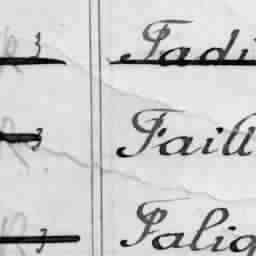 3 Fadi
3 Faill
3 Falig